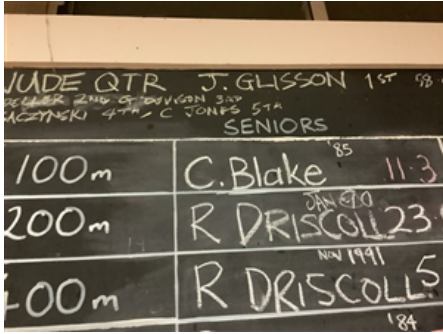 NUDE QTR J. GLISSON 1ST 58
2ND G DAVISON 3RD
ACZYNSKI 4TH, C JONES 5TH
SENIORS
100m C. Blake '85 11.3
200m R DRISCOLL JAN 90 23
400m R DRISCOLL NOV 1991 5
'84